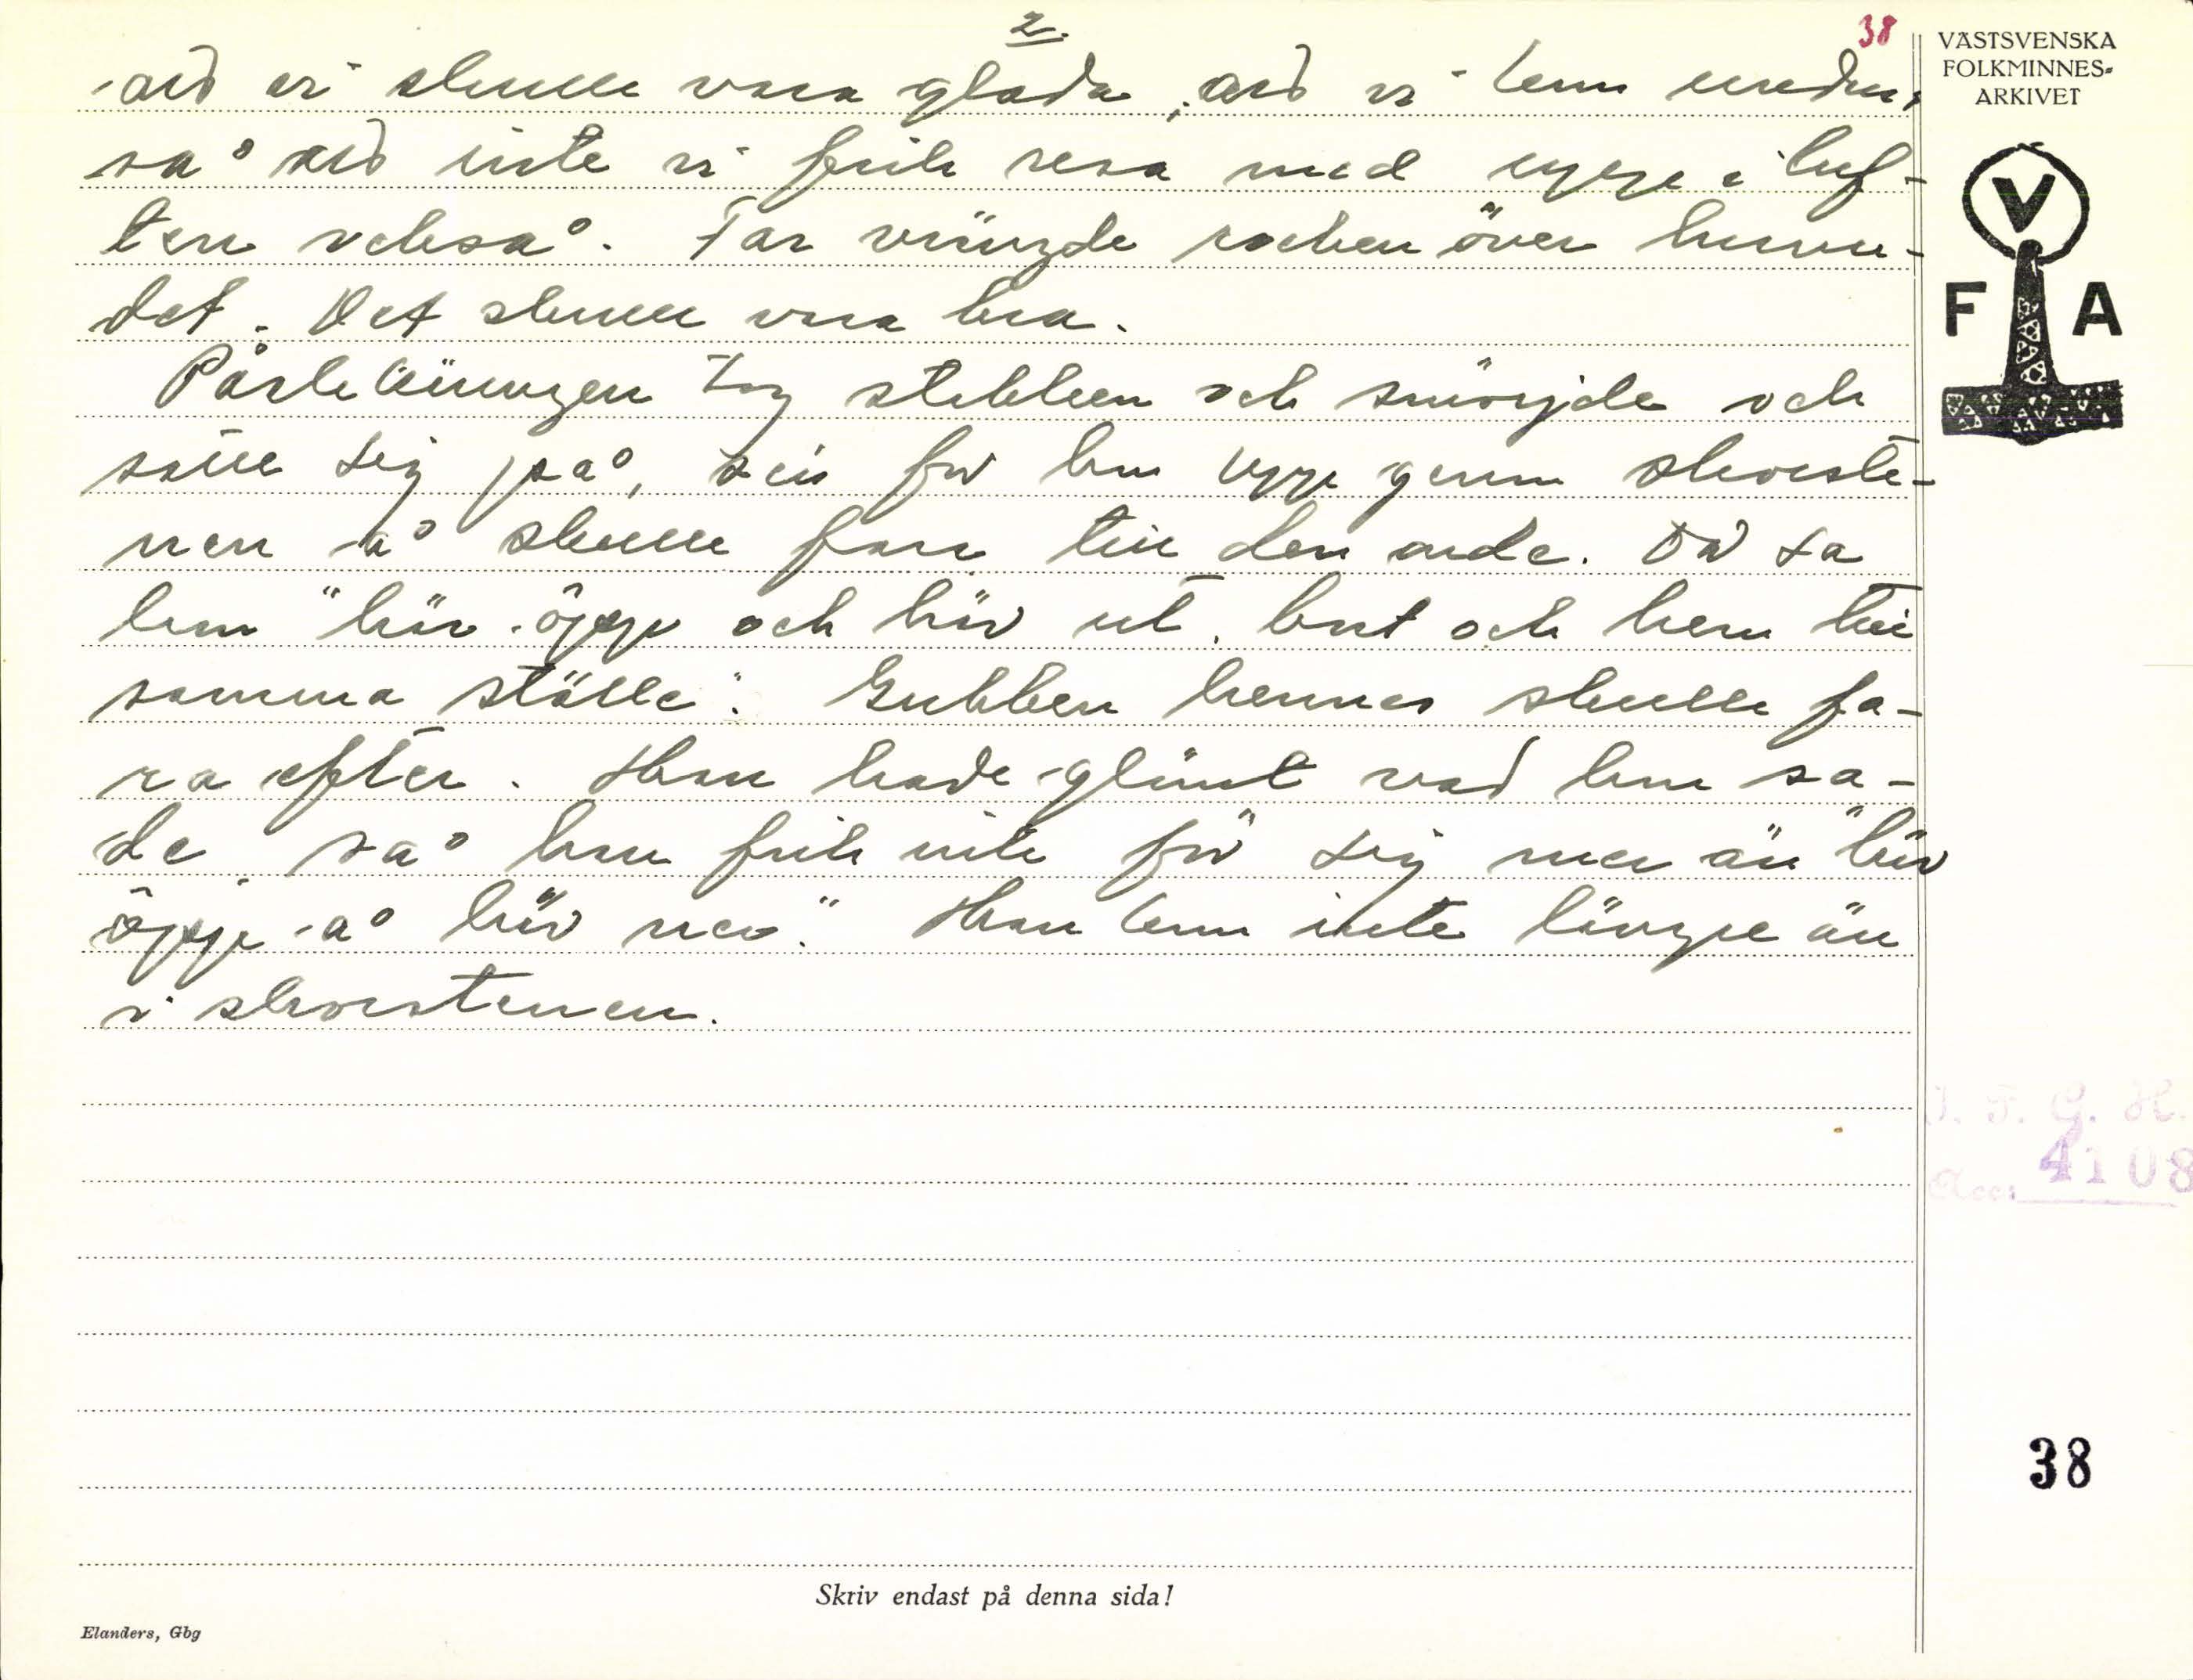 2.
38
att vi skulle vara glada, att vi kom undan,
så att inte vi fick resa med uppe i luf-
ten också. Far vängde rocken över huvu-
det. Det skulle vara bra.
Påskkäringen tog stekken och smörjde och
satte sig på, sen for hon upp genom skorste-
nen å skulle fara till den onde. Då sa
hon "hiv öpp och hiv ut, bort och hem till
samma ställe". Gubben hennes skulle fa-
ra efter. Han hade glömt vad hon sa-
de, så han fick inte för sig mer än "hiv
öpp å hiv ner." Han kom inte längre än
i skorstenen.
VÄSTSVENSKA
FOLKMINNES-
ARKIVET
V
F A
I. F. G. H.
Acc. 4108
38
Skriv endast på denna sida!
Elanders, Gbg